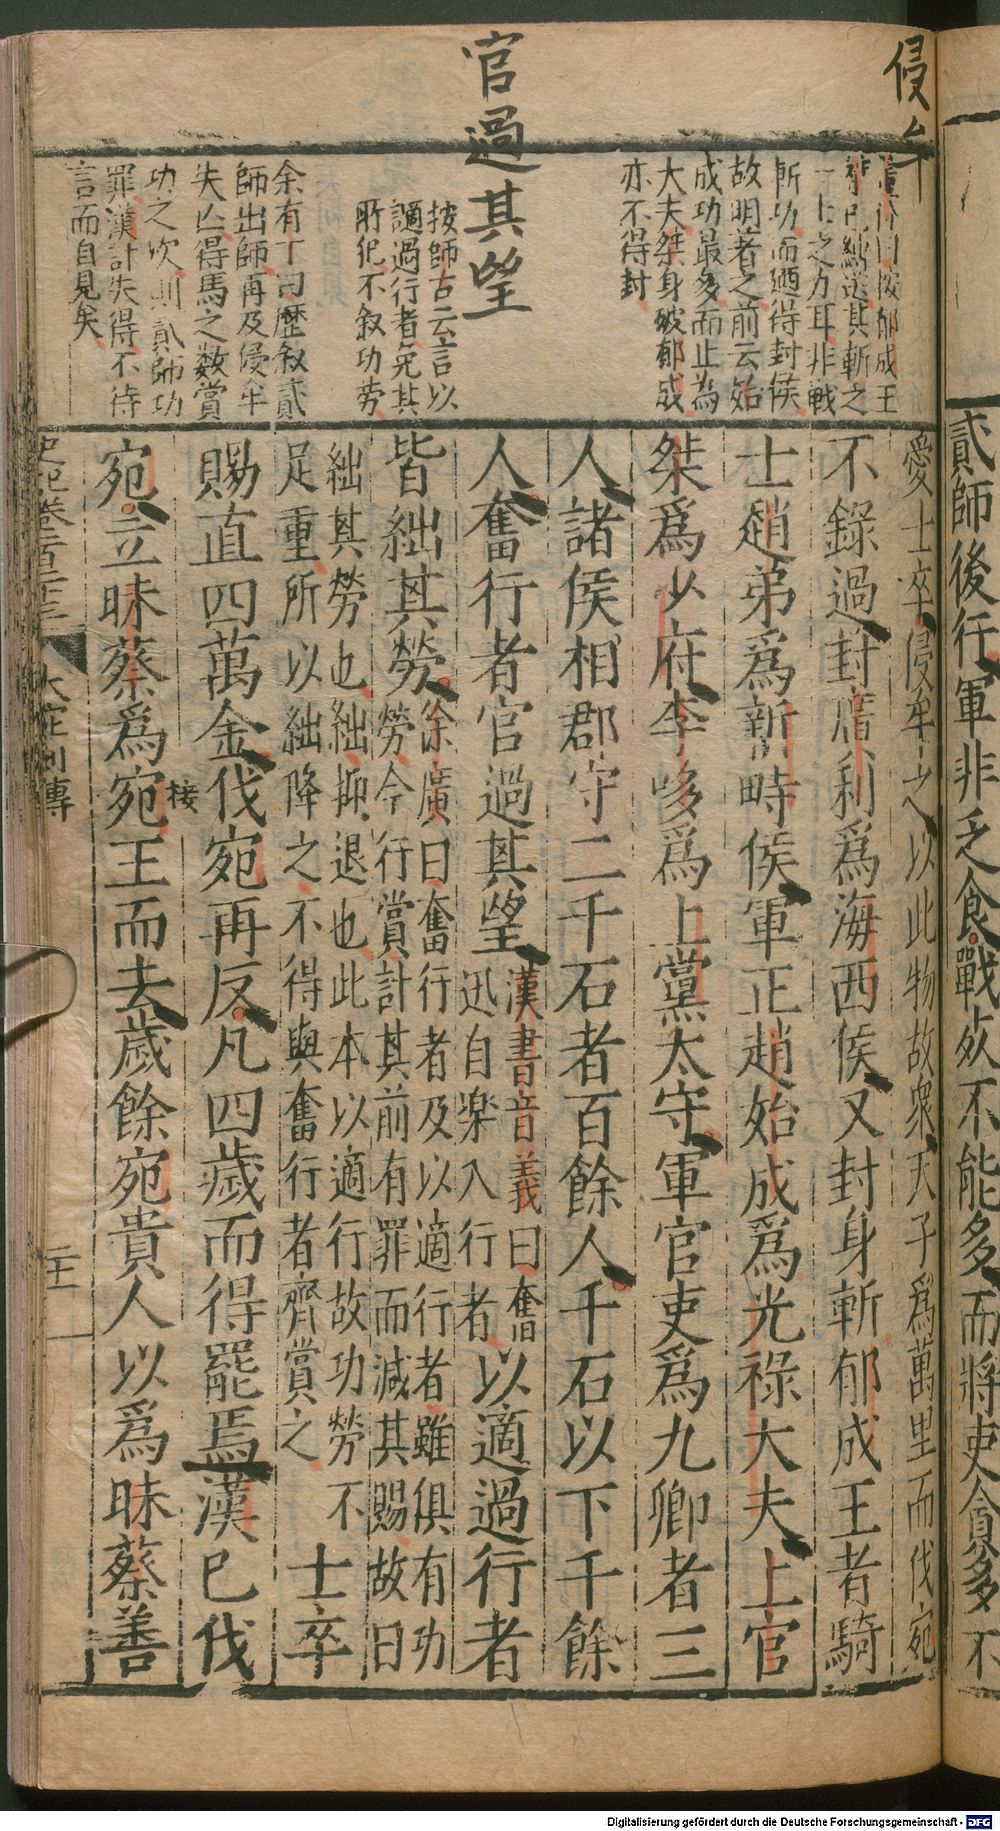 貳師後行軍非乏食戰死不能多而將吏貪多不
侵牟
董份曰按郁成王
斬功而廼得封侯
故明著之前云始
成功最多而止為
大夫桀身破郁成
亦不得封
官過其望
按師古云言以
讁過行者免其
所犯不敘功勞
余有丁曰歷敘貳
師出師再及侵牟
失亾得馬之数賞
功之次則貳師功
罪漢計失得不待
言而自見矣
愛士卒侵牟之以此物故衆天子爲萬里而伐宛
不錄過封廣利爲海西侯又封身斬郁成王者騎
士趙弟爲新畤侯軍正趙始成爲光祿大夫上官
桀爲少府李哆爲上黨太守軍官吏爲九卿者三
人諸侯相郡守二千石者百餘人千石以下千餘
人奮行者官過其望
漢書音義曰奮
迅自楽入行者
以適過行者
皆絀其勞
徐廣曰奮行者及以適行者雖俱有功
勞今行賞計其前有罪而減其賜故曰
絀其勞也絀抑退也此本以適行故功勞不
足重所以絀降之不得與奮行者齊賞之
士卒
賜直四萬金伐宛再反凡四歲而得罷焉漢已伐
接
宛立昧蔡爲宛王而去歲餘宛貴人以爲昧蔡善
史記卷一百二十三
大宛列傳
二十一
Digitalisierung gefördert durch die Deutsche Forschungsgemeinschaft - DFG